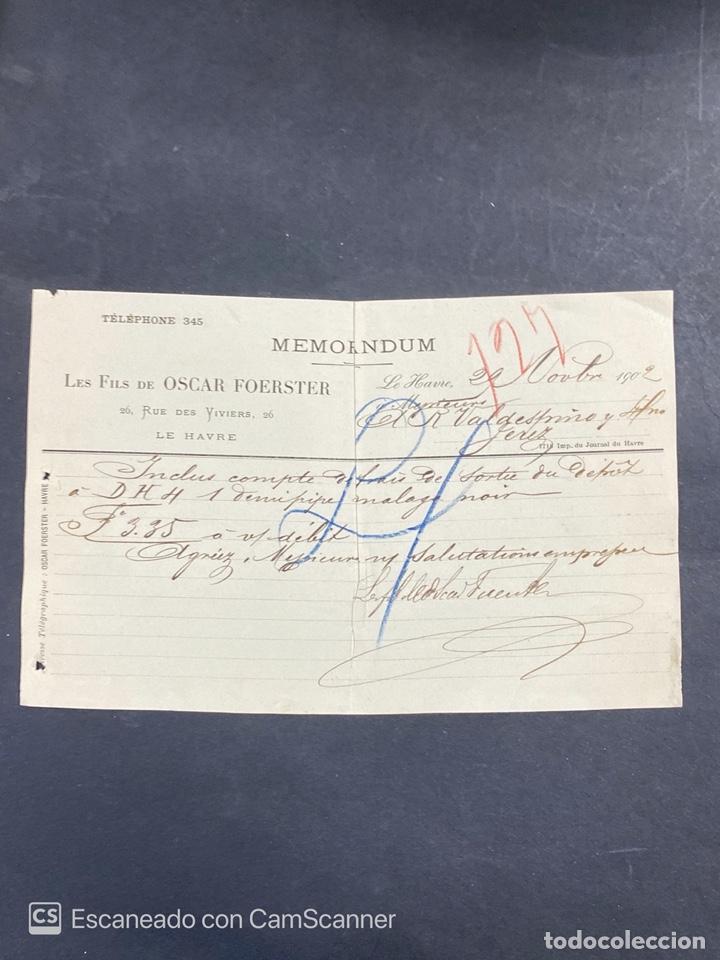 TÉLÉPHONE 345
MEMORNDUM
127
LES FILS DE OSCAR FOERSTER
26, RUE DES VIVIERS, 26
LE HAVRE
Le Havre, 29 Novbre 1902
Messieurs
A R Valdespino y Hno
Jerez
Imp. du Journal du Havre
Adresse Télégraphique : OSCAR FOERSTER - HAVRE
Inclus compte de frais de sortie du dépôt
à DHH 1 demi pipe malaga noir
Fs 3.35 à v/ débit
Agréez, Messieurs n/ salutations empressées
CS Escaneado con CamScanner
todocoleccion